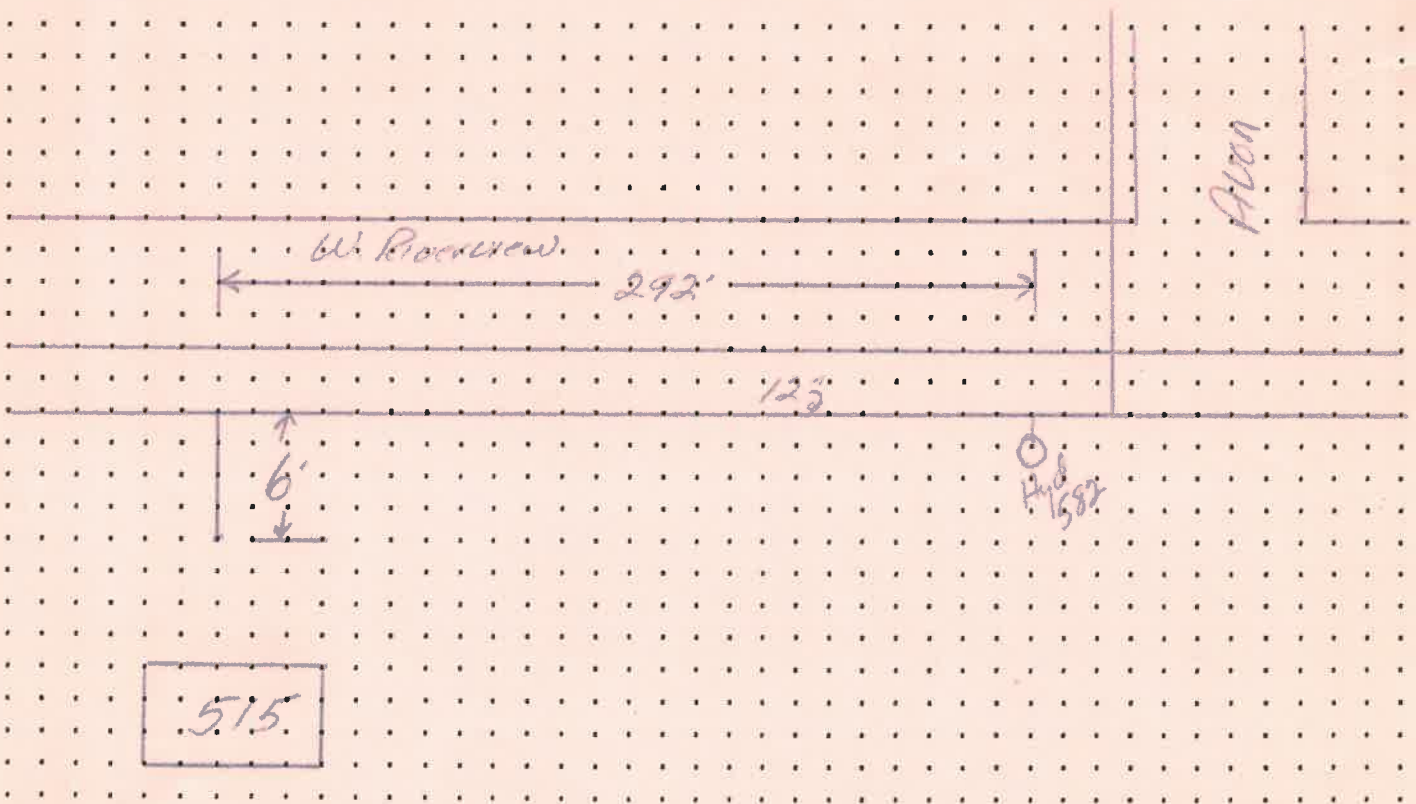 Avon
W. Riverview
292'
6'
Hyd
1582
515